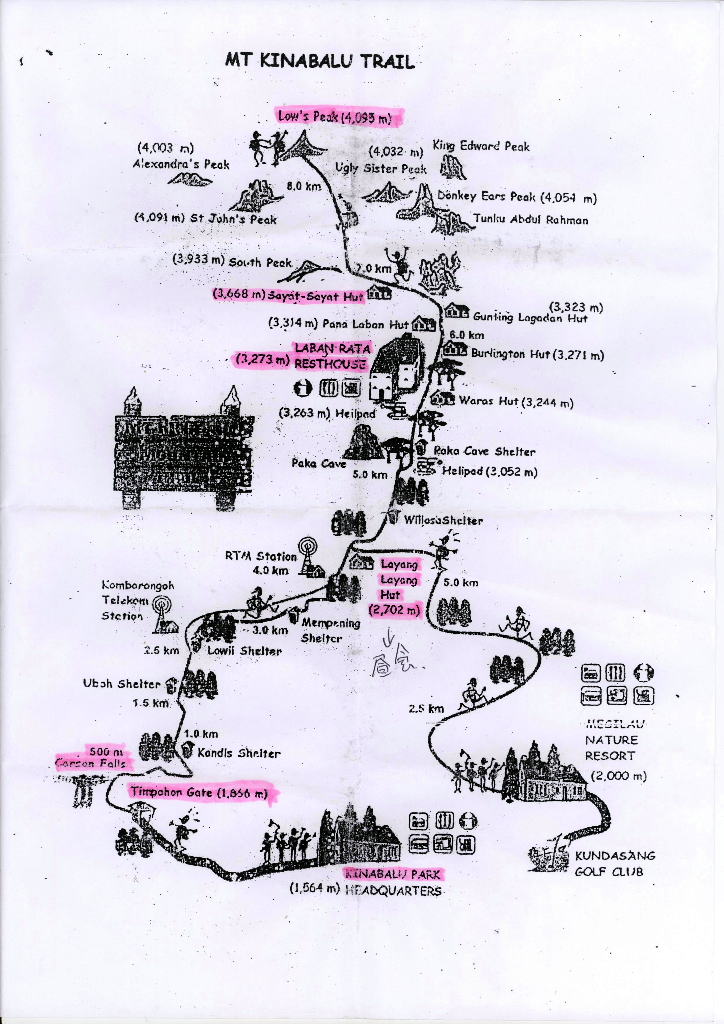 MT KINABALU TRAIL
Low's Peak (4,095 m)
(4,003 m)
Alexandra's Peak
(4,032 m)
Ugly Sister Peak
King Edward Peak
8.0 km
Donkey Ears Peak (4,054 m)
(4,091 m) St John's Peak
Tunku Abdul Rahman
(3,933 m) South Peak
7.0 km
(3,668 m) Sayat-Sayat Hut
(3,323 m)
Gunting Lagadan Hut
(3,314 m) Pana Laban Hut
6.0 km
LABAN RATA
(3,273 m) RESTHOUSE
Burlington Hut (3,271 m)
Waras Hut (3,244 m)
(3,263 m) Helipad
Paka Cave Shelter
Paka Cave
5.0 km
Helipad (3,052 m)
Willosa Shelter
RTM Station
4.0 km
Layang
Layang
Hut
(2,702 m)
5.0 km
Komborongoh
Telekom
Station
3.0 km
Mempening
Shelter
2.5 km
Lowii Shelter
昼食
Ubah Shelter
1.5 km
2.5 km
1.0 km
Kandis Shelter
MESILAU
NATURE
RESORT
(2,000 m)
500 m
Carson Falls
Timpohon Gate (1,866 m)
KUNDASANG
GOLF CLUB
KINABALU PARK
(1,564 m) HEADQUARTERS